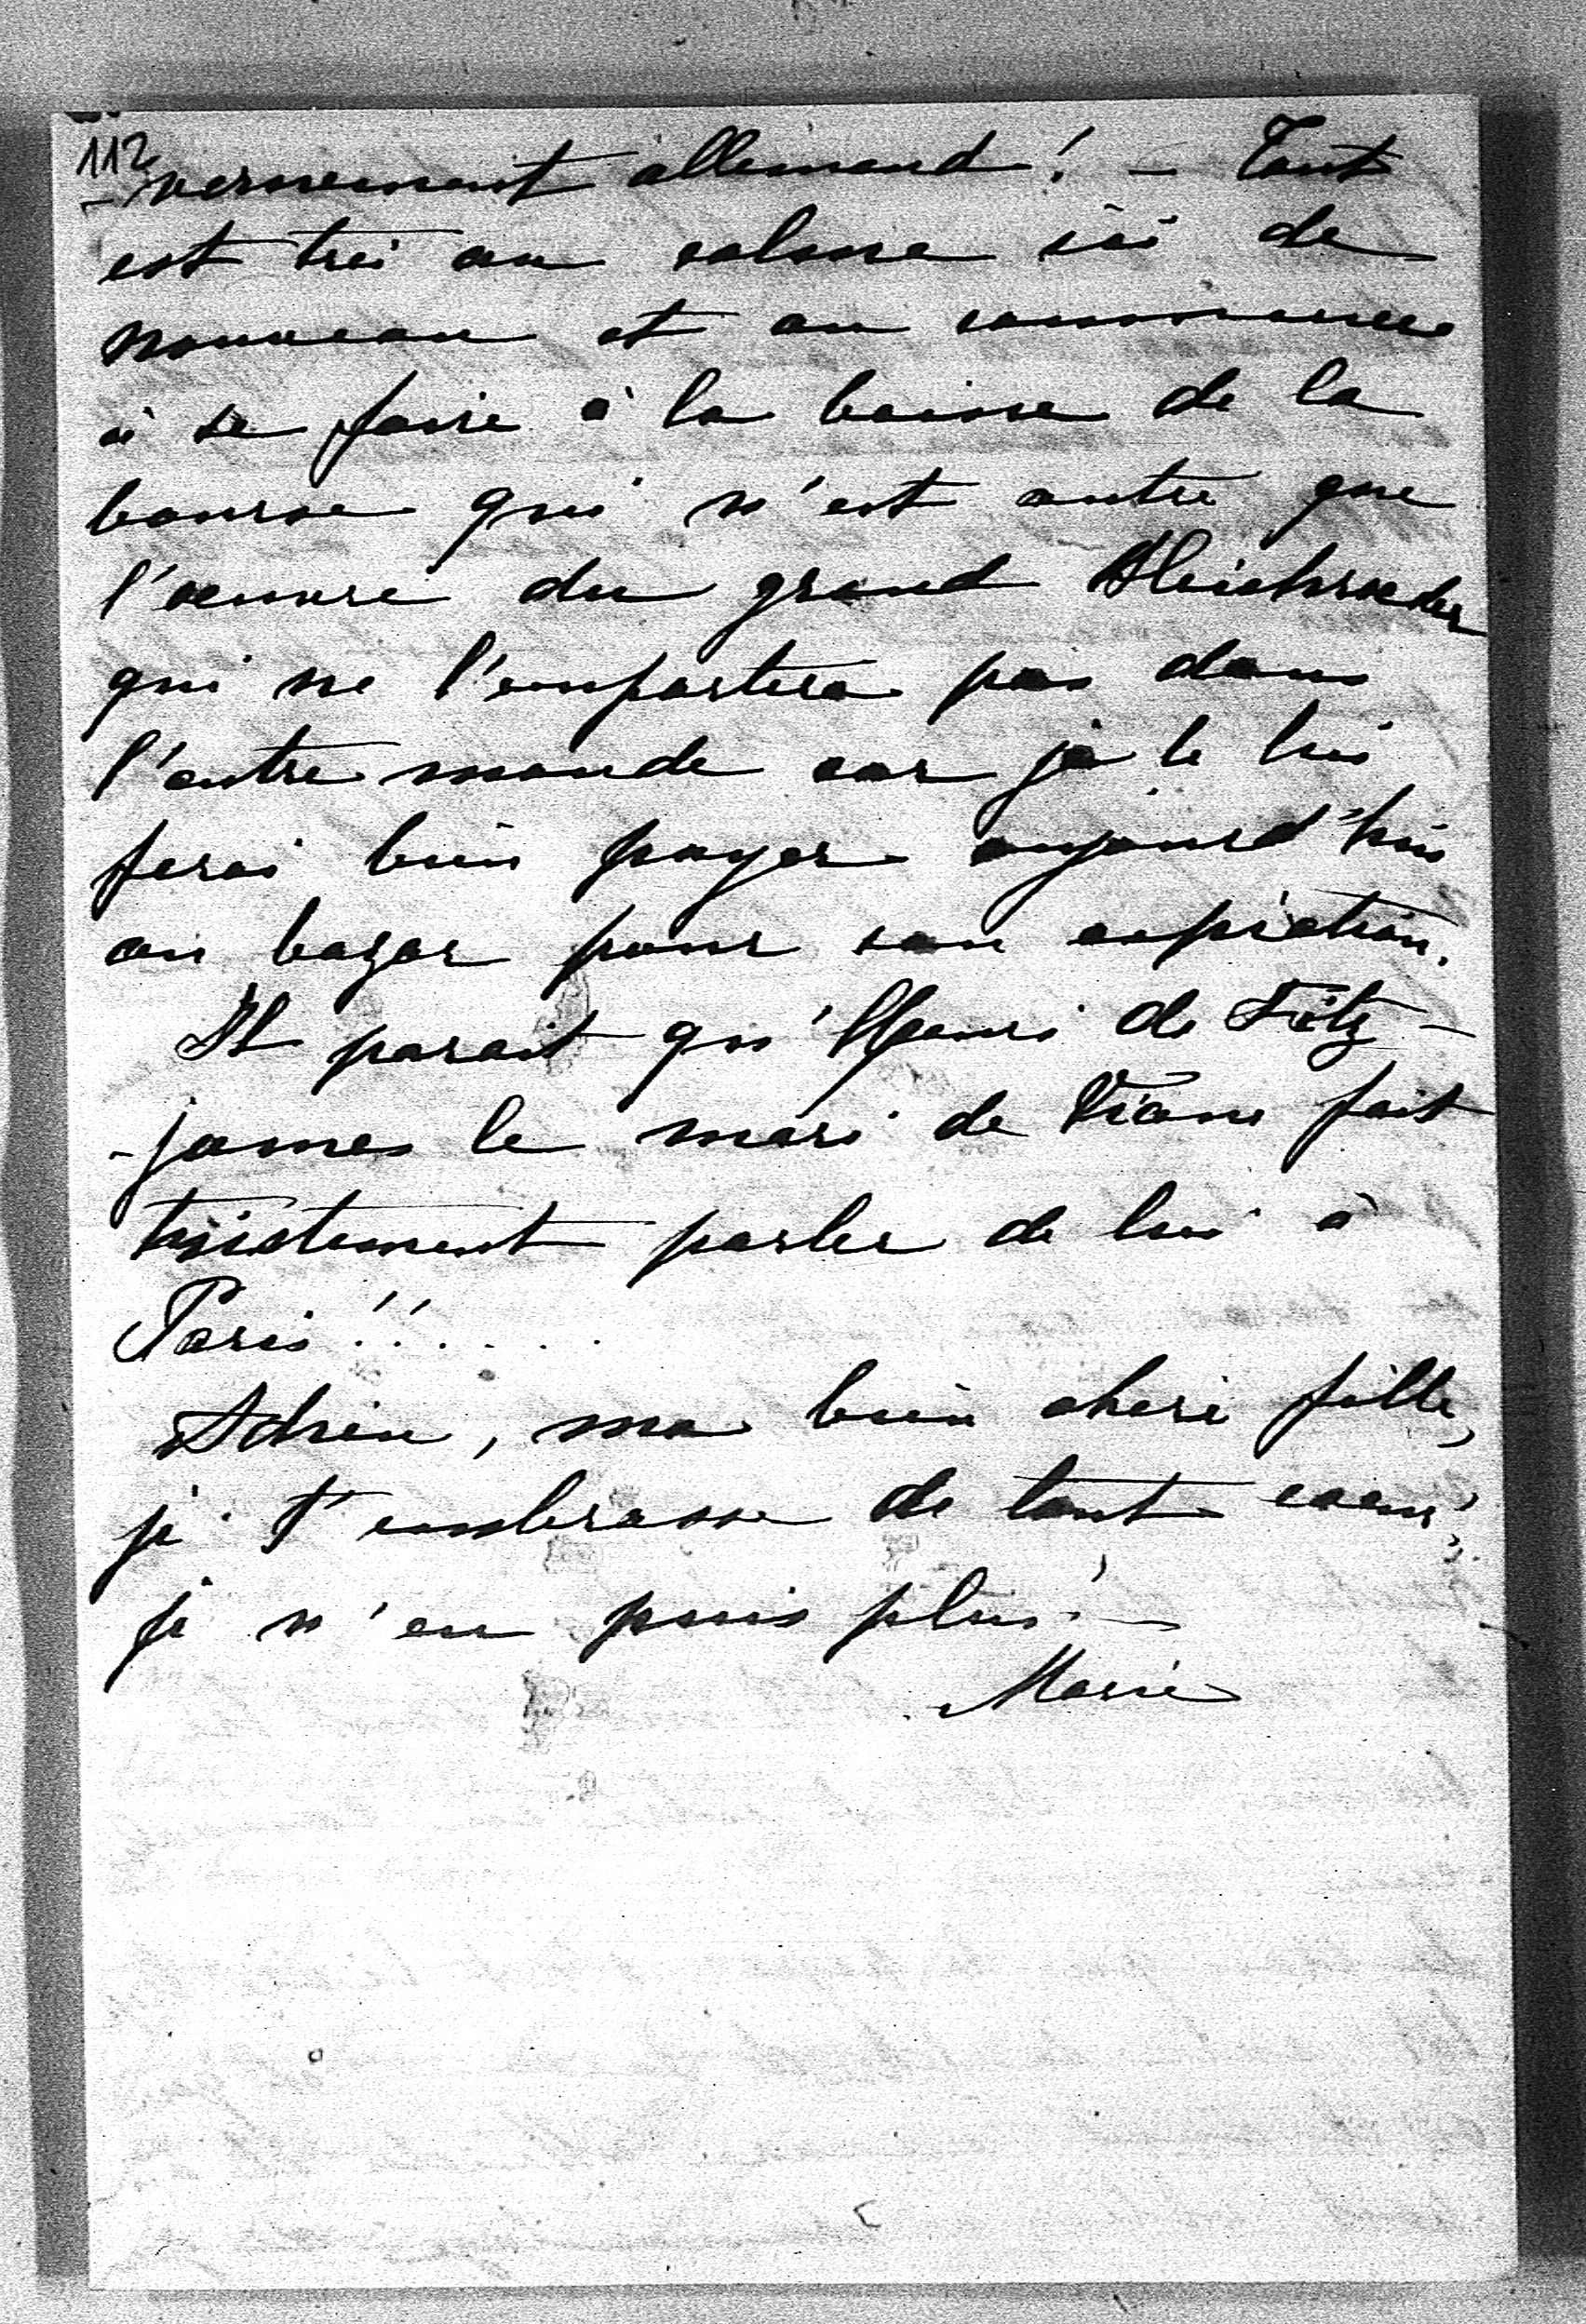 112
-vernement allemand! - Tout
est très au calme ici de
nouveau et on commence
à se faire à la baisse de la
bourse qui n'est autre que
l'oeuvre du grand Bleichroeder
qui ne l'emportera pas dans
l'autre monde car je le lui
ferai bien payer aujourd'hui
au bazar pour son expiation.
Il parait qu'Henri de Fitz-
-james le mari de Viane fait
tristement parler de lui à
Paris!!.....
Adieu, ma bien chère fille,
je t'embrasse de tout coeur,
je n'en puis plus! -
Marie